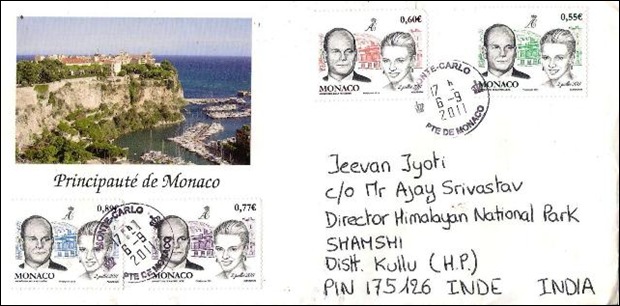 0,60€
MONACO
0,55€
MONACO
MONTE-CARLO
6-9
2011
PTE DE MONACO
Principauté de Monaco
0,77€
MONACO
MONACO
2 juillet 2011
MONTE-CARLO
PTE DE MONACO
Jeevan Jyoti
c/o Mr Ajay Srivastav
Director Himalayan National Park
SHAMSHI
Distt. Kullu (H.P.)
PIN 175126 INDE INDIA